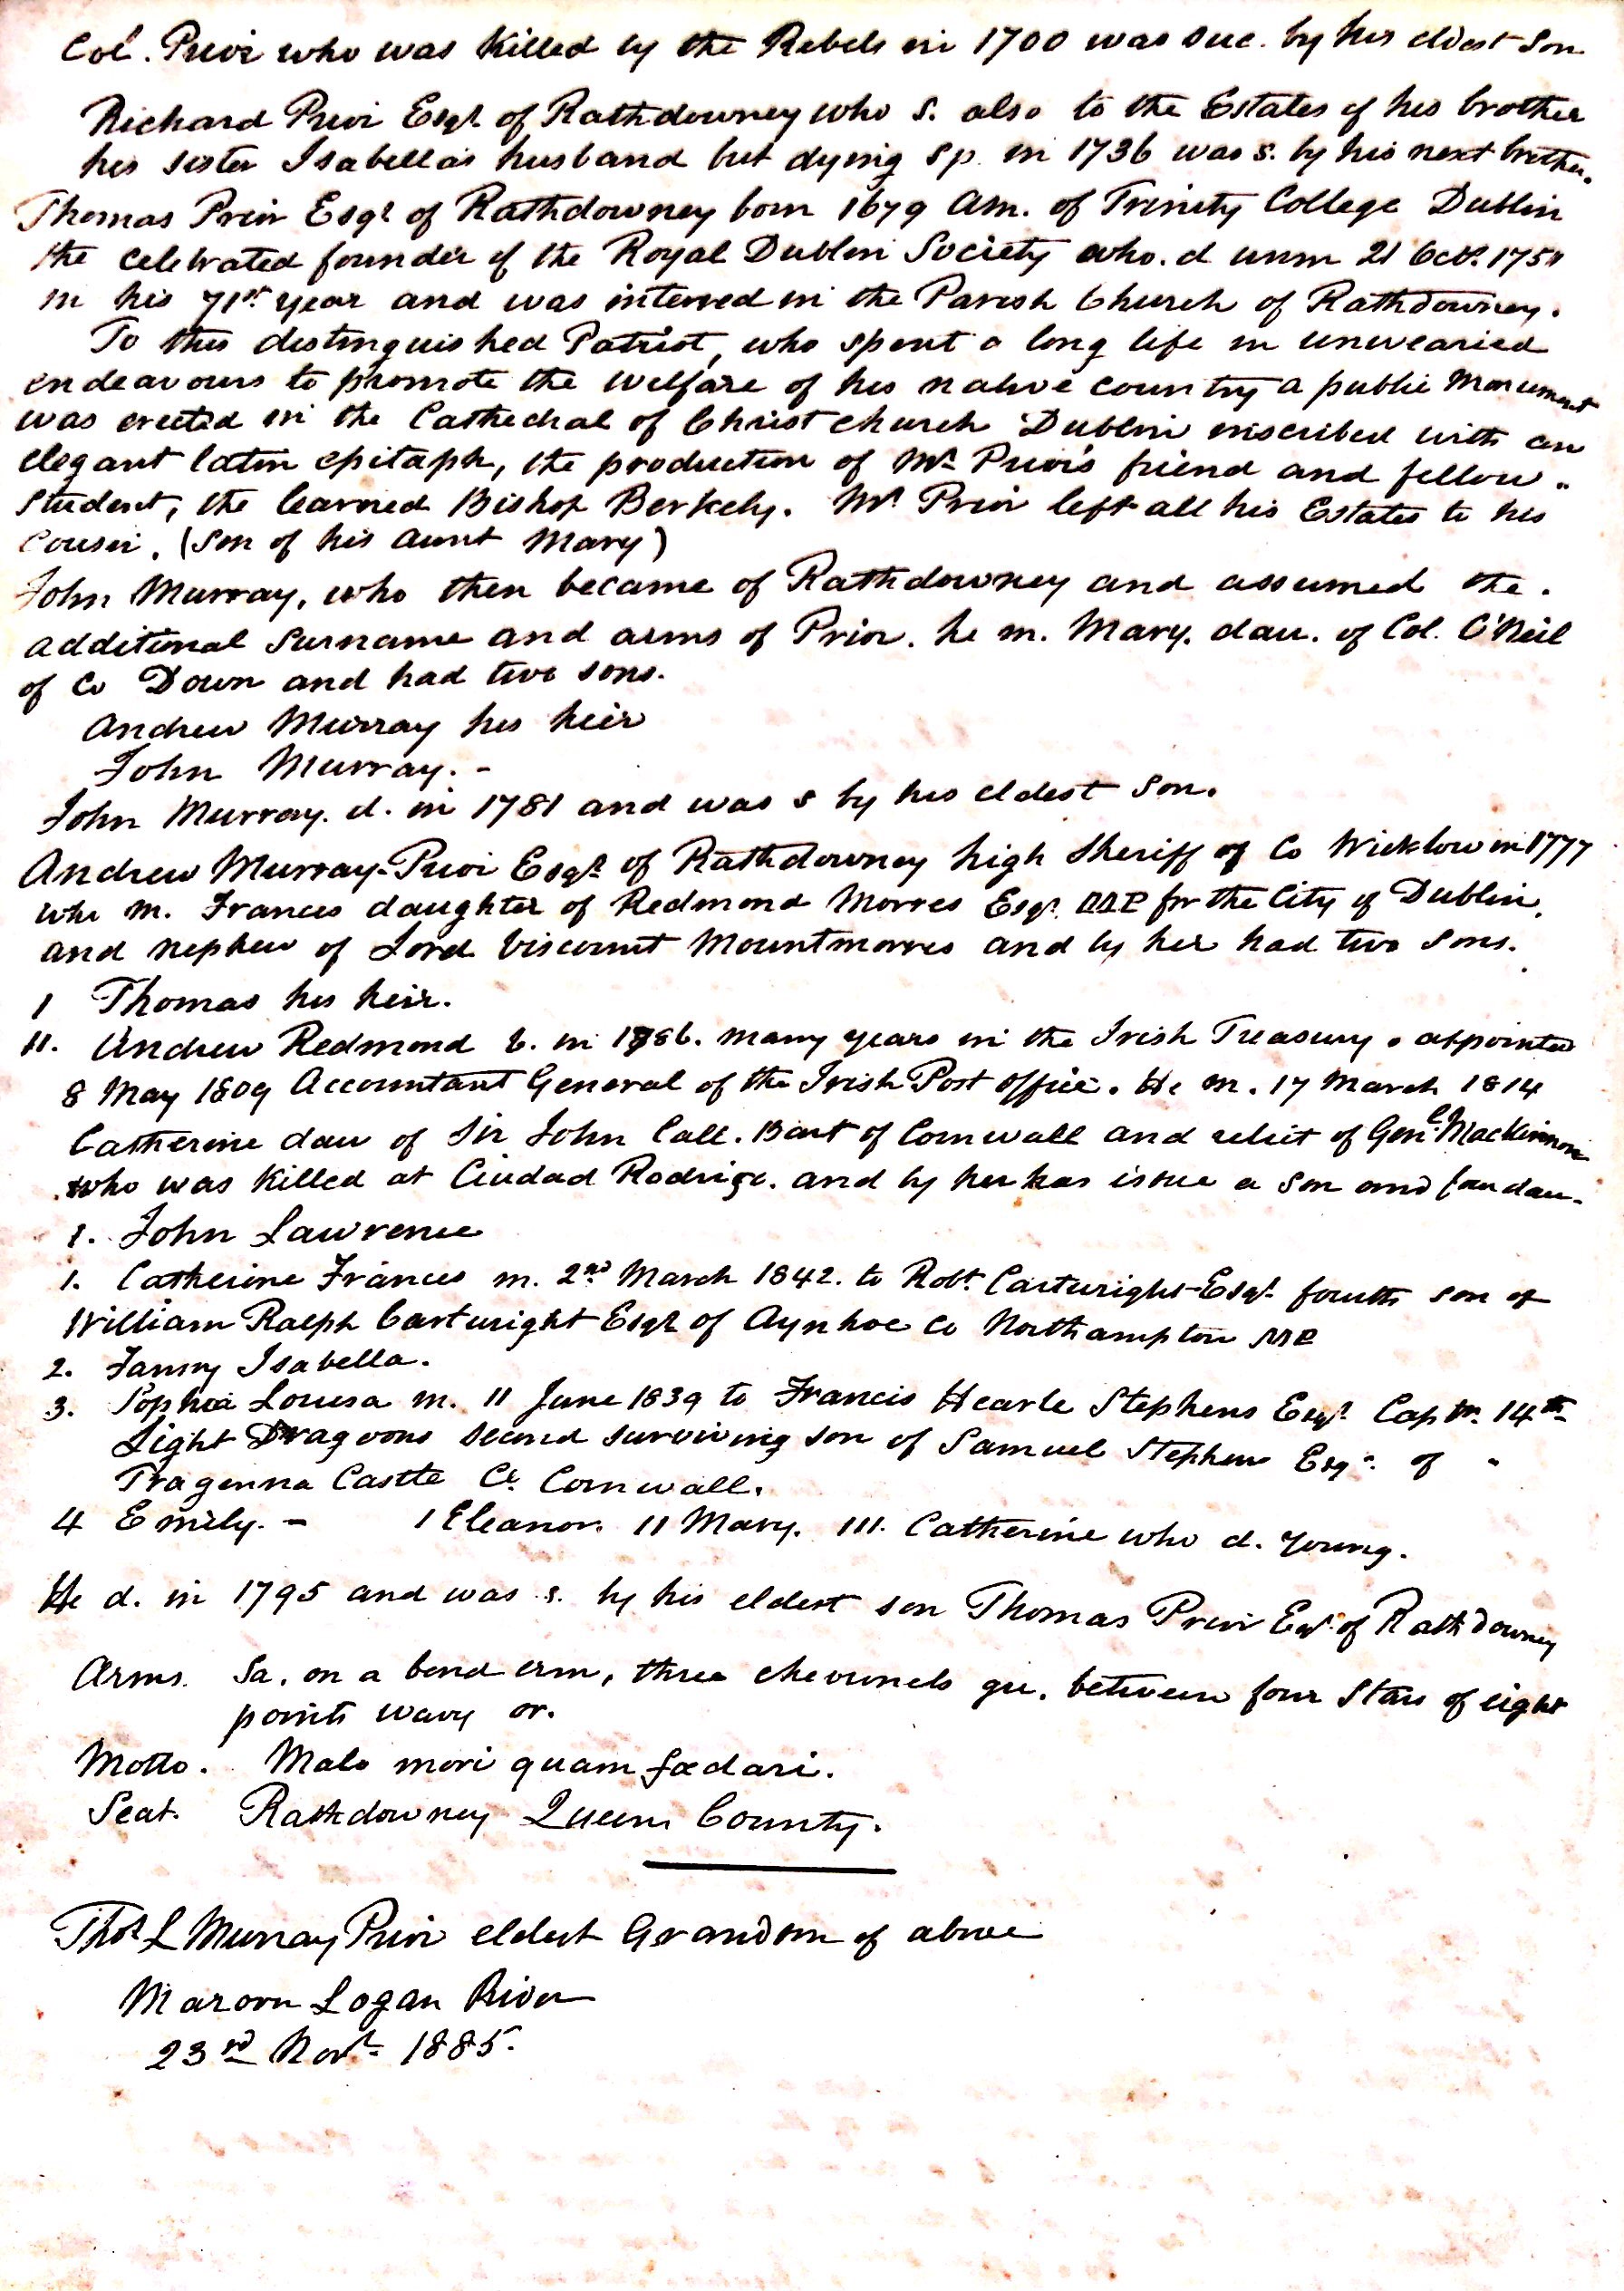 Col. Prior who was Killed by the Rebels in 1700 was suc. by his eldest Son
Richard Prior Esqr of Rathdowney who s. also to the Estates of his brother
his sister Isabella's husband but dying sp. in 1736 was s. by his next brother.
Thomas Prior Esqr of Rathdowney born 1679 AM. of Trinity College Dublin
the celebrated founder of the Royal Dublin Society who. d unm 21 Octr. 1751
in his 71st year and was interred in the Parish Church of Rathdowney.
To this distinguished Patriot, who spent a long life in unwearied
endeavours to promote the welfare of his native country a public Monument
was erected in the Cathedral of Christ church Dublin inscribed with an
elegant latin epitaph, the production of Mr Prior's friend and fellow
student, the learned Bishop Berkely. Mr Prior left all his Estates to his
Cousin. (Son of his Aunt Mary)
John Murray, who then became of Rathdowney and assumed the.
additional Surname and arms of Prior. he m. Mary. dau. of Col. O'Neil
of Co Down and had two sons.
Andrew Murray his heir
John Murray. -
John Murray. d. in 1781 and was s by his eldest Son.
Andrew Murray-Prior Esqr. of Rathdowney high Sheriff of Co Wicklow in 1777
who m. Frances daughter of Redmond Morres Esqr. MP for the City of Dublin,
and nephew of Lord Viscount Mountmorres and by her had two Sons.
1 Thomas his heir.
11. Andrew Redmond b. in 1786. many years in the Irish Treasury. appointed
8 May 1809 Accountant General of the Irish Post office. He m. 17 March 1814
Catherine dau of Sir John Call. Bart of Cornwall and relict of Genl. Mackinnon
who was Killed at Ciudad Rodrigo. and by her has issue a Son and four dau-
1. John Lawrence
1. Catherine Frances m. 2nd March 1842. to Robt. Cartwright Esqr. fourth son of
William Ralph Cartwright Esqr of Aynhoe Co Northampton MP
2. Fanny Isabella.
3. Sophia Louisa m. 11 June 1839 to Francis Hearle Stephens Esqr. Captn. 14th
Light Dragoons second surviving son of Samuel Stephens Esqr. of
Tragenna Castle Co. Cornwall.
4 Emily. - 1 Eleanor. 11 Mary. 111. Catherine who d. young.
He d. in 1795 and was s. by his eldest son Thomas Prior Esqr. of Rathdowney
Arms. Sa. on a bend erm, three chevronels gu. between four Stars of eight
points wavy or.
Motto. Malo mori quam fœdari.
Seat. Rathdowney Queens County.
Thos L Murray Prior eldest Grandson of above
Maroon Logan River
23rd Novr 1885.